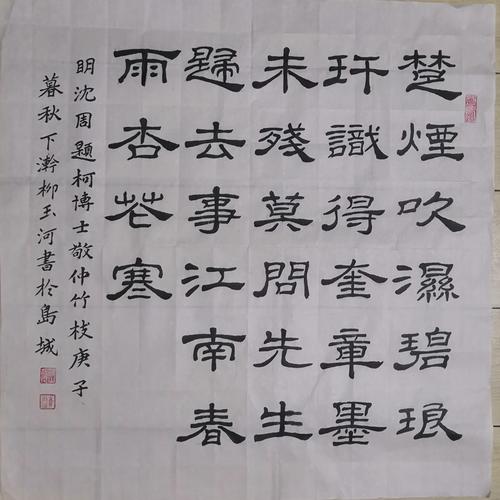 楚煙吹濕碧琅
玕識得奎章墨
未殘莫問先生
歸去事江南春
雨杏花寒
明沈周題柯博士敬仲竹枝庚子
暮秋下澣柳玉河書於島城